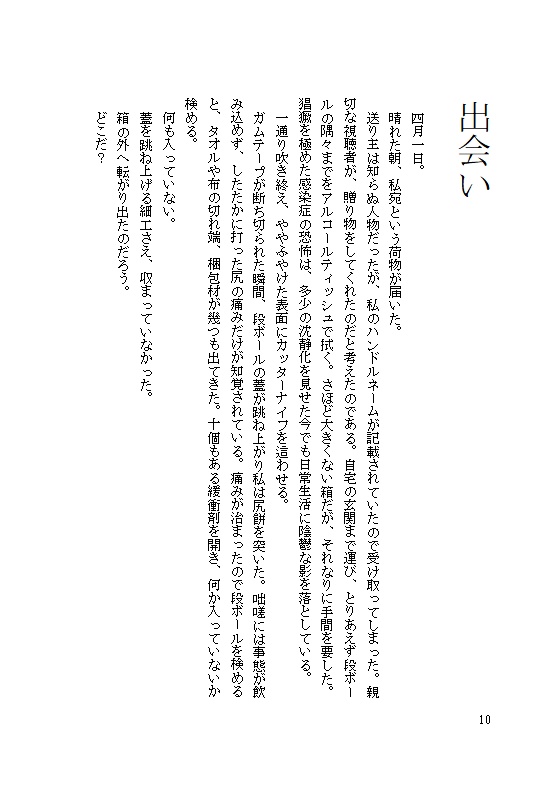 出会い
四月一日。
晴れた朝、私宛という荷物が届いた。
送り主は知らぬ人物だったが、私のハンドルネームが記載されていたので受け取ってしまった。親
切な視聴者が、贈り物をしてくれたのだと考えたのである。自宅の玄関まで運び、とりあえず段ボー
ルの隅々までをアルコールティッシュで拭く。さほど大きくない箱だが、それなりに手間を要した。
猖獗を極めた感染症の恐怖は、多少の沈静化を見せた今でも日常生活に陰鬱な影を落としている。
一通り吹き終え、ややふやけた表面にカッターナイフを這わせる。
ガムテープが断ち切られた瞬間、段ボールの蓋が跳ね上がり私は尻餅を突いた。咄嗟には事態が飲
み込めず、したたかに打った尻の痛みだけが知覚されている。痛みが治まったので段ボールを検める
と、タオルや布の切れ端、梱包材が幾つも出てきた。十個もある緩衝剤を開き、何か入っていないか
検める。
何も入っていない。
蓋を跳ね上げる細工さえ、収まっていなかった。
箱の外へ転がり出たのだろう。
どこだ？
10